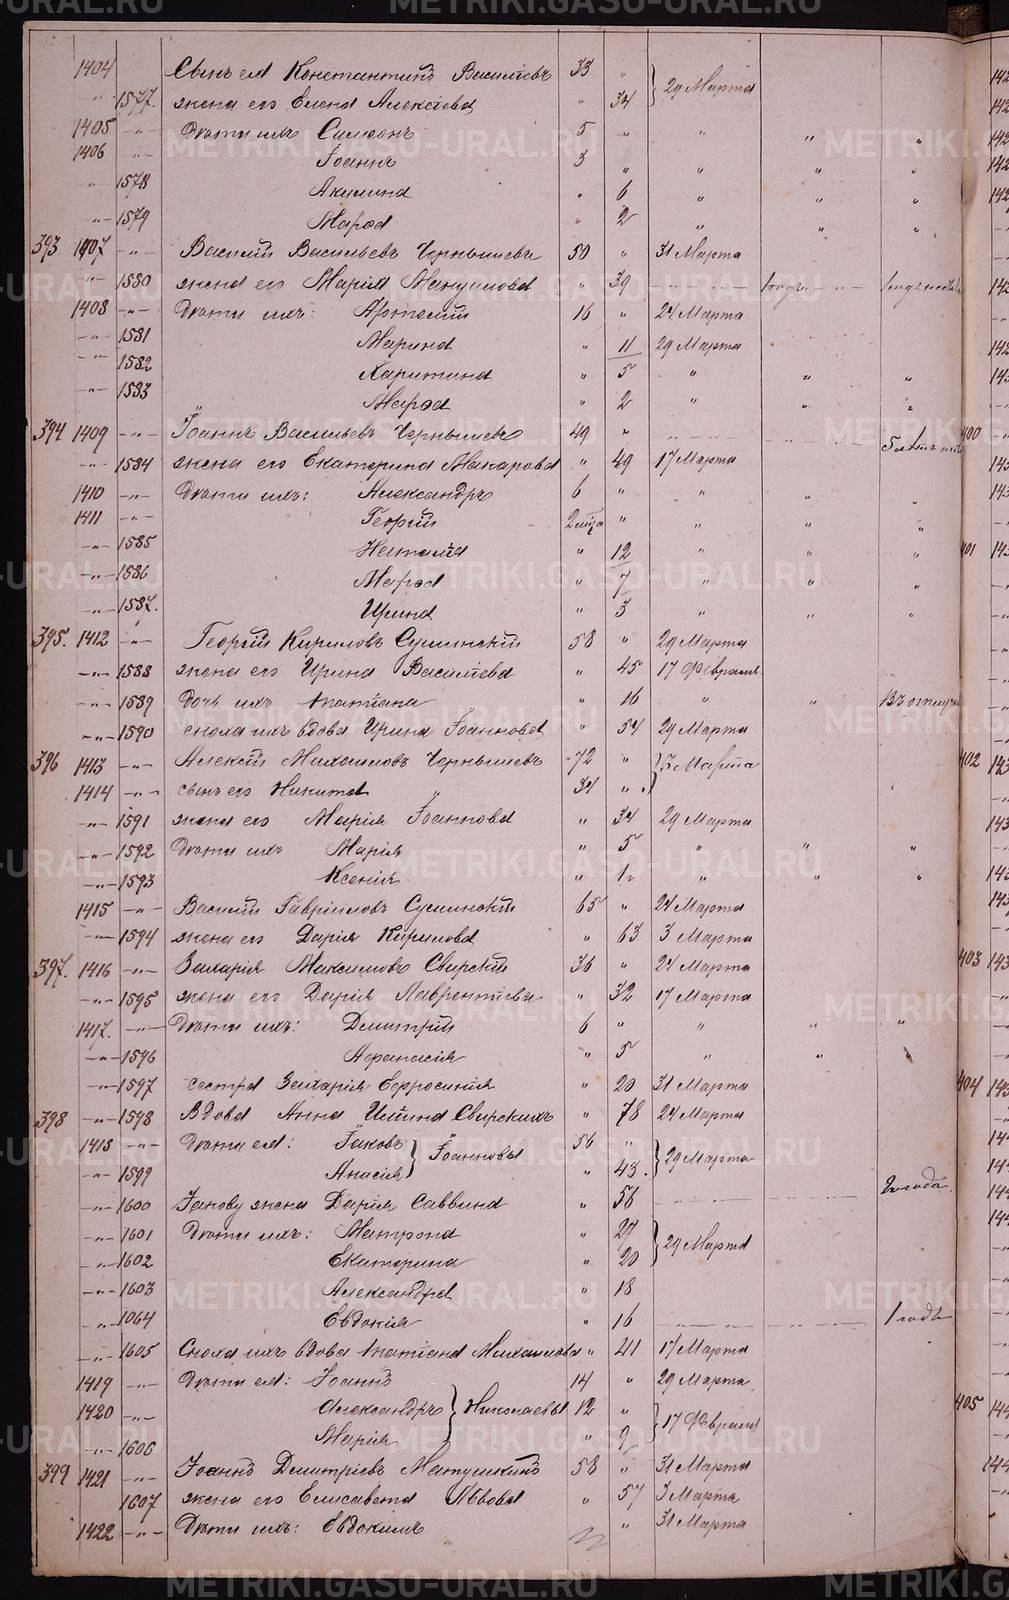 1404 Сынъ ея Константинъ Васильевъ 33 " } 29 Марта
" 1577. жена его Елена Алексѣева " 34
1405 -"- Дѣти ихъ Симеонъ 5 " " " "
1406 -"- Іоаннъ 3 " " " "
" 1578 Акилина " 6 " "
-"- 1579 Марѳа " 2 " " "
393 1407 -"- Василій Васильевъ Чернышевъ 50 " 31 Марта
-"- 1580 жена его Марія Мануилова " 39
1408 -"- Дѣти ихъ: Артемій 16 " 24 Марта
-"- 1581 Марина " 11 29 Марта
-"- 1582 Харитина " 5 " " "
-"- 1583 Марѳа " 2 " " "
394 1409 -"- Іоаннъ Васильевъ Чернышевъ 49 "
-"- 1584 жена его Екатерина Макарова " 49 17 Марта
1410 -"- Дѣти ихъ: Александръ 6 " " " "
1411 -"- Георгій 2 мѣ " " " "
-"- 1585 Наталія " 12 " " "
-"- 1586 Марѳа " 7 " " "
-"- 1587. Ирина " 3 " " "
395. 1412 -"- Георгій Кириловъ Сушинскій 58 " 29 Марта
-"- 1588 жена его Ирина Василіева " 45 17 Февраля
-"- 1589 дочь ихъ Татіана " 16 " "
-"- 1590 сноха ихъ вдова Ирина Іоаннова " 54 29 Марта
396 1413 -"- Алексій Михаиловъ Чернышевъ 72 " } 3 Марта
1414 -"- сынъ его Никита 34 "
-"- 1591 жена его Марія Іоаннова " 34 29 Марта
-"- 1592 Дѣти ихъ Марія " 5 " " "
-"- 1593 Ксенія " " " "
1415 -"- Василій Гавріиловъ Сушинскій 65 " 24 Марта
-"- 1594 жена его Дарія Кирилова " 63 3 Марта
397. 1416 -"- Захарія Максимовъ Свирскій 36 " 24 Марта
-"- 1595 жена его Дарія Лаврентіева " 32 17 Марта
1417. -"- Дѣти ихъ: Димитрій 6 " " " "
-"- 1596 Аѳанасія " 5 " "
-"- 1597 сестра Захарія Евфросинія " 20 31 Марта
398 -"- 1598 Вдова Анна Ильина Свирскихъ " 78 24 Марта
1418 -"- Дѣти ея: Іаковъ } Іоанновы 56 " } 29 Марта
-"- 1599 Анисія " 43.
-"- 1600 Іакову жена Дарія Саввина " 56 2 года
-"- 1601 Дѣти ихъ: Матрона " 27 } 29 Марта
-"- 1602 Екатерина " 20
-"- 1603 Александра " 18
-"- 1064 Евдокія " 16 1 годъ
-"- 1605 Сноха ихъ вдова Татіана Михаилова " 41 17 Марта
1419 -"- Дѣти ея: Іоаннъ 14 " 29 Марта
1420 -"- Александръ } Николаевы 12 " } 17 Февраля
-"- 1606 Марія " 9
399 1421 -"- Іоаннъ Димитріевъ Матушкинъ 58 " 31 Марта
1607 жена его Елисавета Львова " 57 3 Марта
1422 -"- Дѣти ихъ: Евдокимъ " 31 Марта